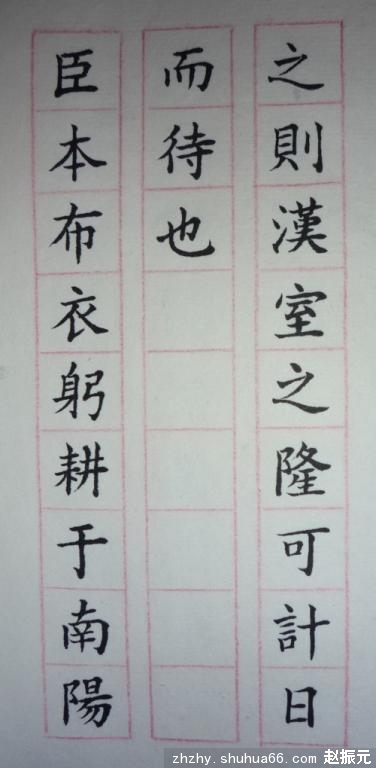 之則漢室之隆可計日
而待也
臣本布衣躬耕于南陽
zhzhy.shuhua66.com 赵振元